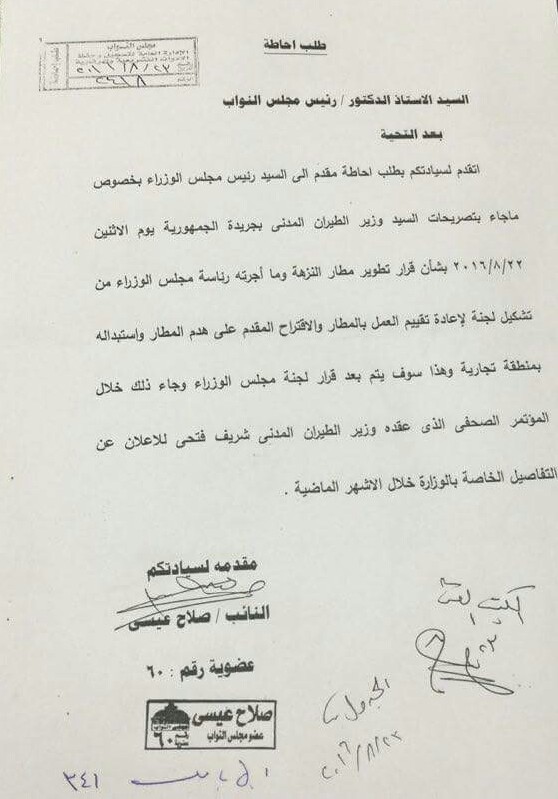 طلب احاطة
مجلس النواب
٢٠١٦/٨/٢٣
السيد الاستاذ الدكتور / رئيس مجلس النواب
بعد التحية
اتقدم لسيادتكم بطلب احاطة مقدم الى السيد رئيس مجلس الوزراء بخصوص
ماجاء بتصريحات السيد وزير الطيران المدنى بجريدة الجمهورية يوم الاثنين
٢٠١٦/٨/٢٢ بشأن قرار تطوير مطار النزهة وما أجرته رئاسة مجلس الوزراء من
تشكيل لجنة لإعادة تقييم العمل بالمطار والاقتراح المقدم على هدم المطار واستبداله
بمنطقة تجارية وهذا سوف يتم بعد قرار لجنة مجلس الوزراء وجاء ذلك خلال
المؤتمر الصحفى الذى عقده وزير الطيران المدنى شريف فتحى للاعلان عن
التفاصيل الخاصة بالوزارة خلال الاشهر الماضية .
مقدمه لسيادتكم
النائب / صلاح عيسى
عضوية رقم : ٦٠
صلاح عيسى
عضو مجلس النواب
مجلس النواب
رقم عضوية
٦٠
٢٠١٦/٨/٢٣
٣٤١